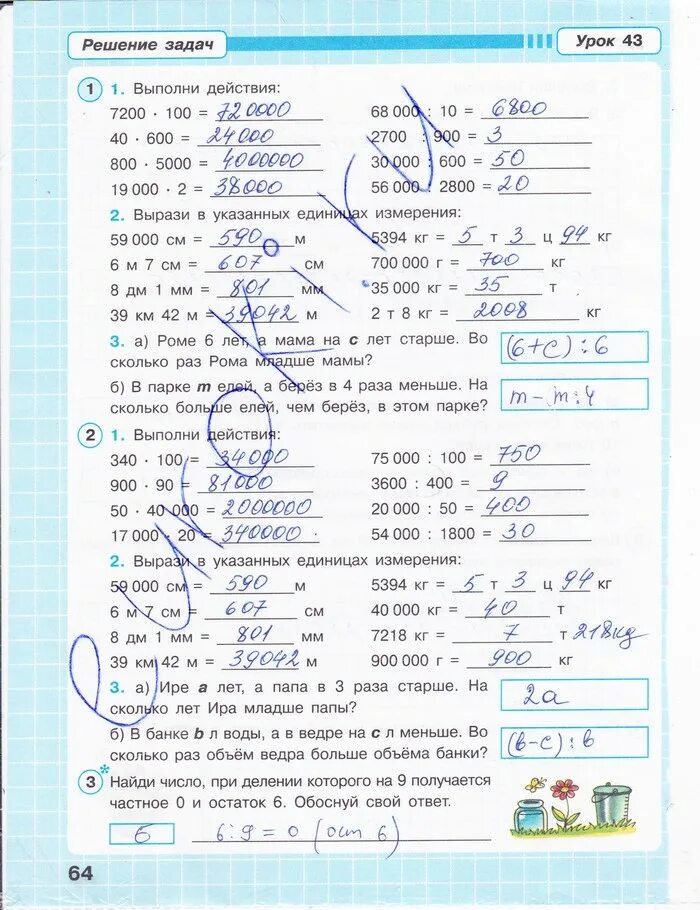 Решение задач
Урок 43
1 1. Выполни действия:
7200 · 100 = 720000 68 000 : 10 = 6800
40 · 600 = 24000 2700 : 900 = 3
800 · 5000 = 4000000 30 000 : 600 = 50
19 000 · 2 = 38000 56 000 : 2800 = 20
2. Вырази в указанных единицах измерения:
59 000 см = 590 м 5394 кг = 5 т 3 ц 94 кг
6 м 7 см = 607 см 700 000 г = 700 кг
8 дм 1 мм = 801 мм 35 000 кг = 35 т
39 км 42 м = 39042 м 2 т 8 кг = 2008 кг
3. а) Роме 6 лет, а мама на c лет старше. Во
сколько раз Рома младше мамы? (6+c) : 6
б) В парке m елей, а берёз в 4 раза меньше. На
сколько больше елей, чем берёз, в этом парке? m - m : 4
2 1. Выполни действия:
340 · 100 = 34000 75 000 : 100 = 750
900 · 90 = 81000 3600 : 400 = 9
50 · 40 000 = 2000000 20 000 : 50 = 400
17 000 · 20 = 340000 54 000 : 1800 = 30
2. Вырази в указанных единицах измерения:
59 000 см = 590 м 5394 кг = 5 т 3 ц 94 кг
6 м 7 см = 607 см 40 000 кг = 40 т
8 дм 1 мм = 801 мм 7218 кг = 7 т 218кг
39 км 42 м = 39042 м 900 000 г = 900 кг
3. а) Ире a лет, а папа в 3 раза старше. На
сколько лет Ира младше папы? 2a
б) В банке b л воды, а в ведре на c л меньше. Во
сколько раз объём ведра больше объёма банки? (b-c) : b
3* Найди число, при делении которого на 9 получается
частное 0 и остаток 6. Обоснуй свой ответ.
6 6 : 9 = 0 (ост 6)
64